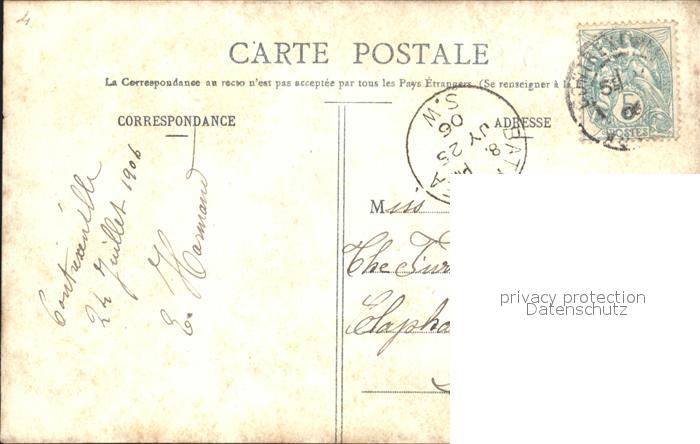 CARTE POSTALE
La Correspondance au recto n'est pas acceptée par tous les Pays Étrangers. (Se renseigner à la
CORRESPONDANCE
ADRESSE
Contrexéville
24 Juillet 1906
E. Harmand
BAT
S.W.
8.
JY 25
06
5
POSTES
Miss
The
Clapha
privacy protection
Datenschutz